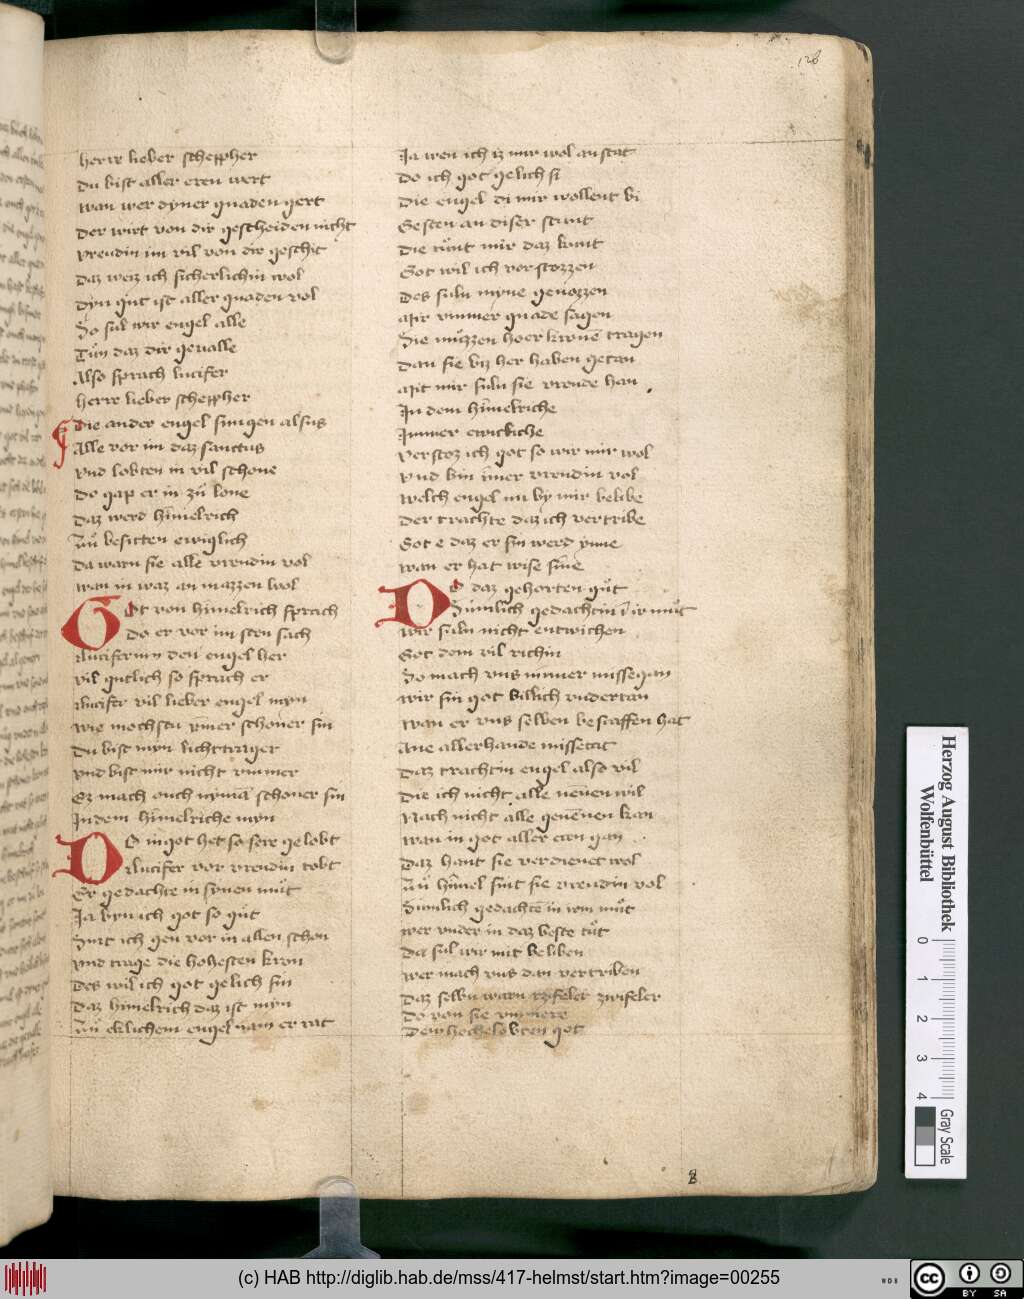 128
herre lieber scheppher
du bist aller eren wert
wan wer dyner gnaden gert
der wirt von dir gescheiden nicht
vreudin im vil von dir geschit
daz weiz ich sicherlichin wol
dyn gut ist aller gnaden vol
So sul wir engel alle
Tůn daz dir gevalle
Also sprach lucifer
herre lieber scheppher
Die ander engel singen alsus
Alle vor im daz sanctus
vnd lobten in vil schone
do gap er in zů lone
daz werd himelrich
zů besitten ewiglich
da warn sie alle vreudin vol
wan in waz an mazzen wol
Got von himelrich sprach
do er vor im sten sach
luciferum den engel her
vil gutlich so sprach er
lucifer vil lieber engel myn
wie mochstu ym̄er schoner sin
du bist myn lichttrager
vnd bist mir nicht vnmer
Ez mach ouch nyman schoner sin
In dem himelriche myn
Do in got het so sere gelobt
lucifer vor vreudin tobt
Er gedachte in synen můt
Ja byn ich got so gut
Sint ich gen vor in allen schon
vnd trage die hohesten kron
des wil ich got gelich sin
daz himelrich daz ist myn
zů etlichem engel nam er rat
Ja wen ich iz mir wol anstat
do ich got gelich si
die engel di mir wollent bi
Gesten an diser stunt
die tůnt mir daz kunt
Got wil ich vorstozzen
des suln myne genozzen
Mir vmmer gnade sagen
Sie můzzen hoer kronē tragen
dan sie biz her haben getan
Mit mir suln sie vreude han
In dem himelriche
Immer ewicliche
verstoz ich got so wir mir wol
vnd bin im̄er vreudin vol
welch engel nu by mir belibe
der trachte daz ich vertribe
Got e daz er sin werd ynne
wan er hat wise sinne
Do daz gehorten gůt
Sumlich gedachtin in ir můt
wir suln nicht entwichen
Got dem vil richin
So mach vns nimer missegan
wir sin got billich vndertan
wan er vns selben bescaffen hat
Ane allerhande missetat
daz trachtin engel also vil
die ich nicht alle nennen wil
Noch nicht alle genennen kan
wan in got aller eren gan
daz hant sie verdienet wol
zů himel sint sie vreudin vol
Sumlich gedachtē in irm můt
wer vnder in daz beste tůt
da sul wir mit beliben
wer mach vns dan vertriben
daz selbn warn zwifeler
do von sie vnmere
dem hochelobten got
8
Herzog August Bibliothek
Wolfenbüttel
0 1 2 3 4
Gray Scale
(c) HAB http://diglib.hab.de/mss/417-helmst/start.htm?image=00255
WDB
cc
BY SA